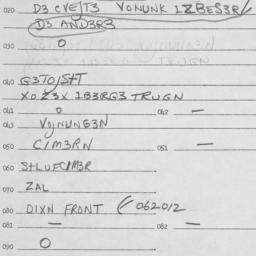 020 D3 CVE/T3 VONUNK 1ZBES3R/
D3 AND3R3
030 O
040 G3TO/StT
XO Z3X 1B3RG3 TRUGN
041 O 042 —
043 VO/NUNG3N
050 C/M3RN 051 —
060 StLUFC/M3R
070 ZAL
080 DIXN FRONT (/062012
081 — 082 —
090 O